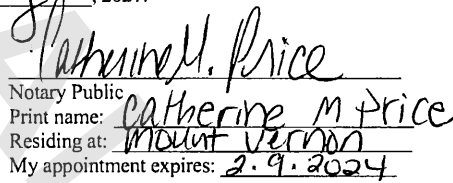 , 2021.
Catherine M. Price
Notary Public
Print name: Catherine M Price
Residing at: Mount Vernon
My appointment expires: 2.9.2024